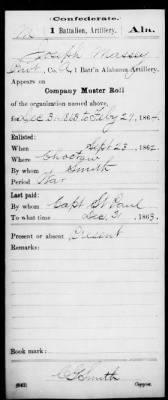 Confederate.
M 1 Battalion, Artillery. Ala.
Joseph Massey
Co. 1 Batt'n Alabama Artillery.
Appears on
Company Muster Roll
of the organization named above,
for Dec 31 1863 to Feby 29, 1864.
Enlisted:
When Sept 23, 1862.
Where Choctaw
By whom Smith
Period War
Last paid:
By whom Capt St Paul
To what time Dec. 31, 1863.
Present or absent Present
Remarks:
Book mark:
(642) Copyist.